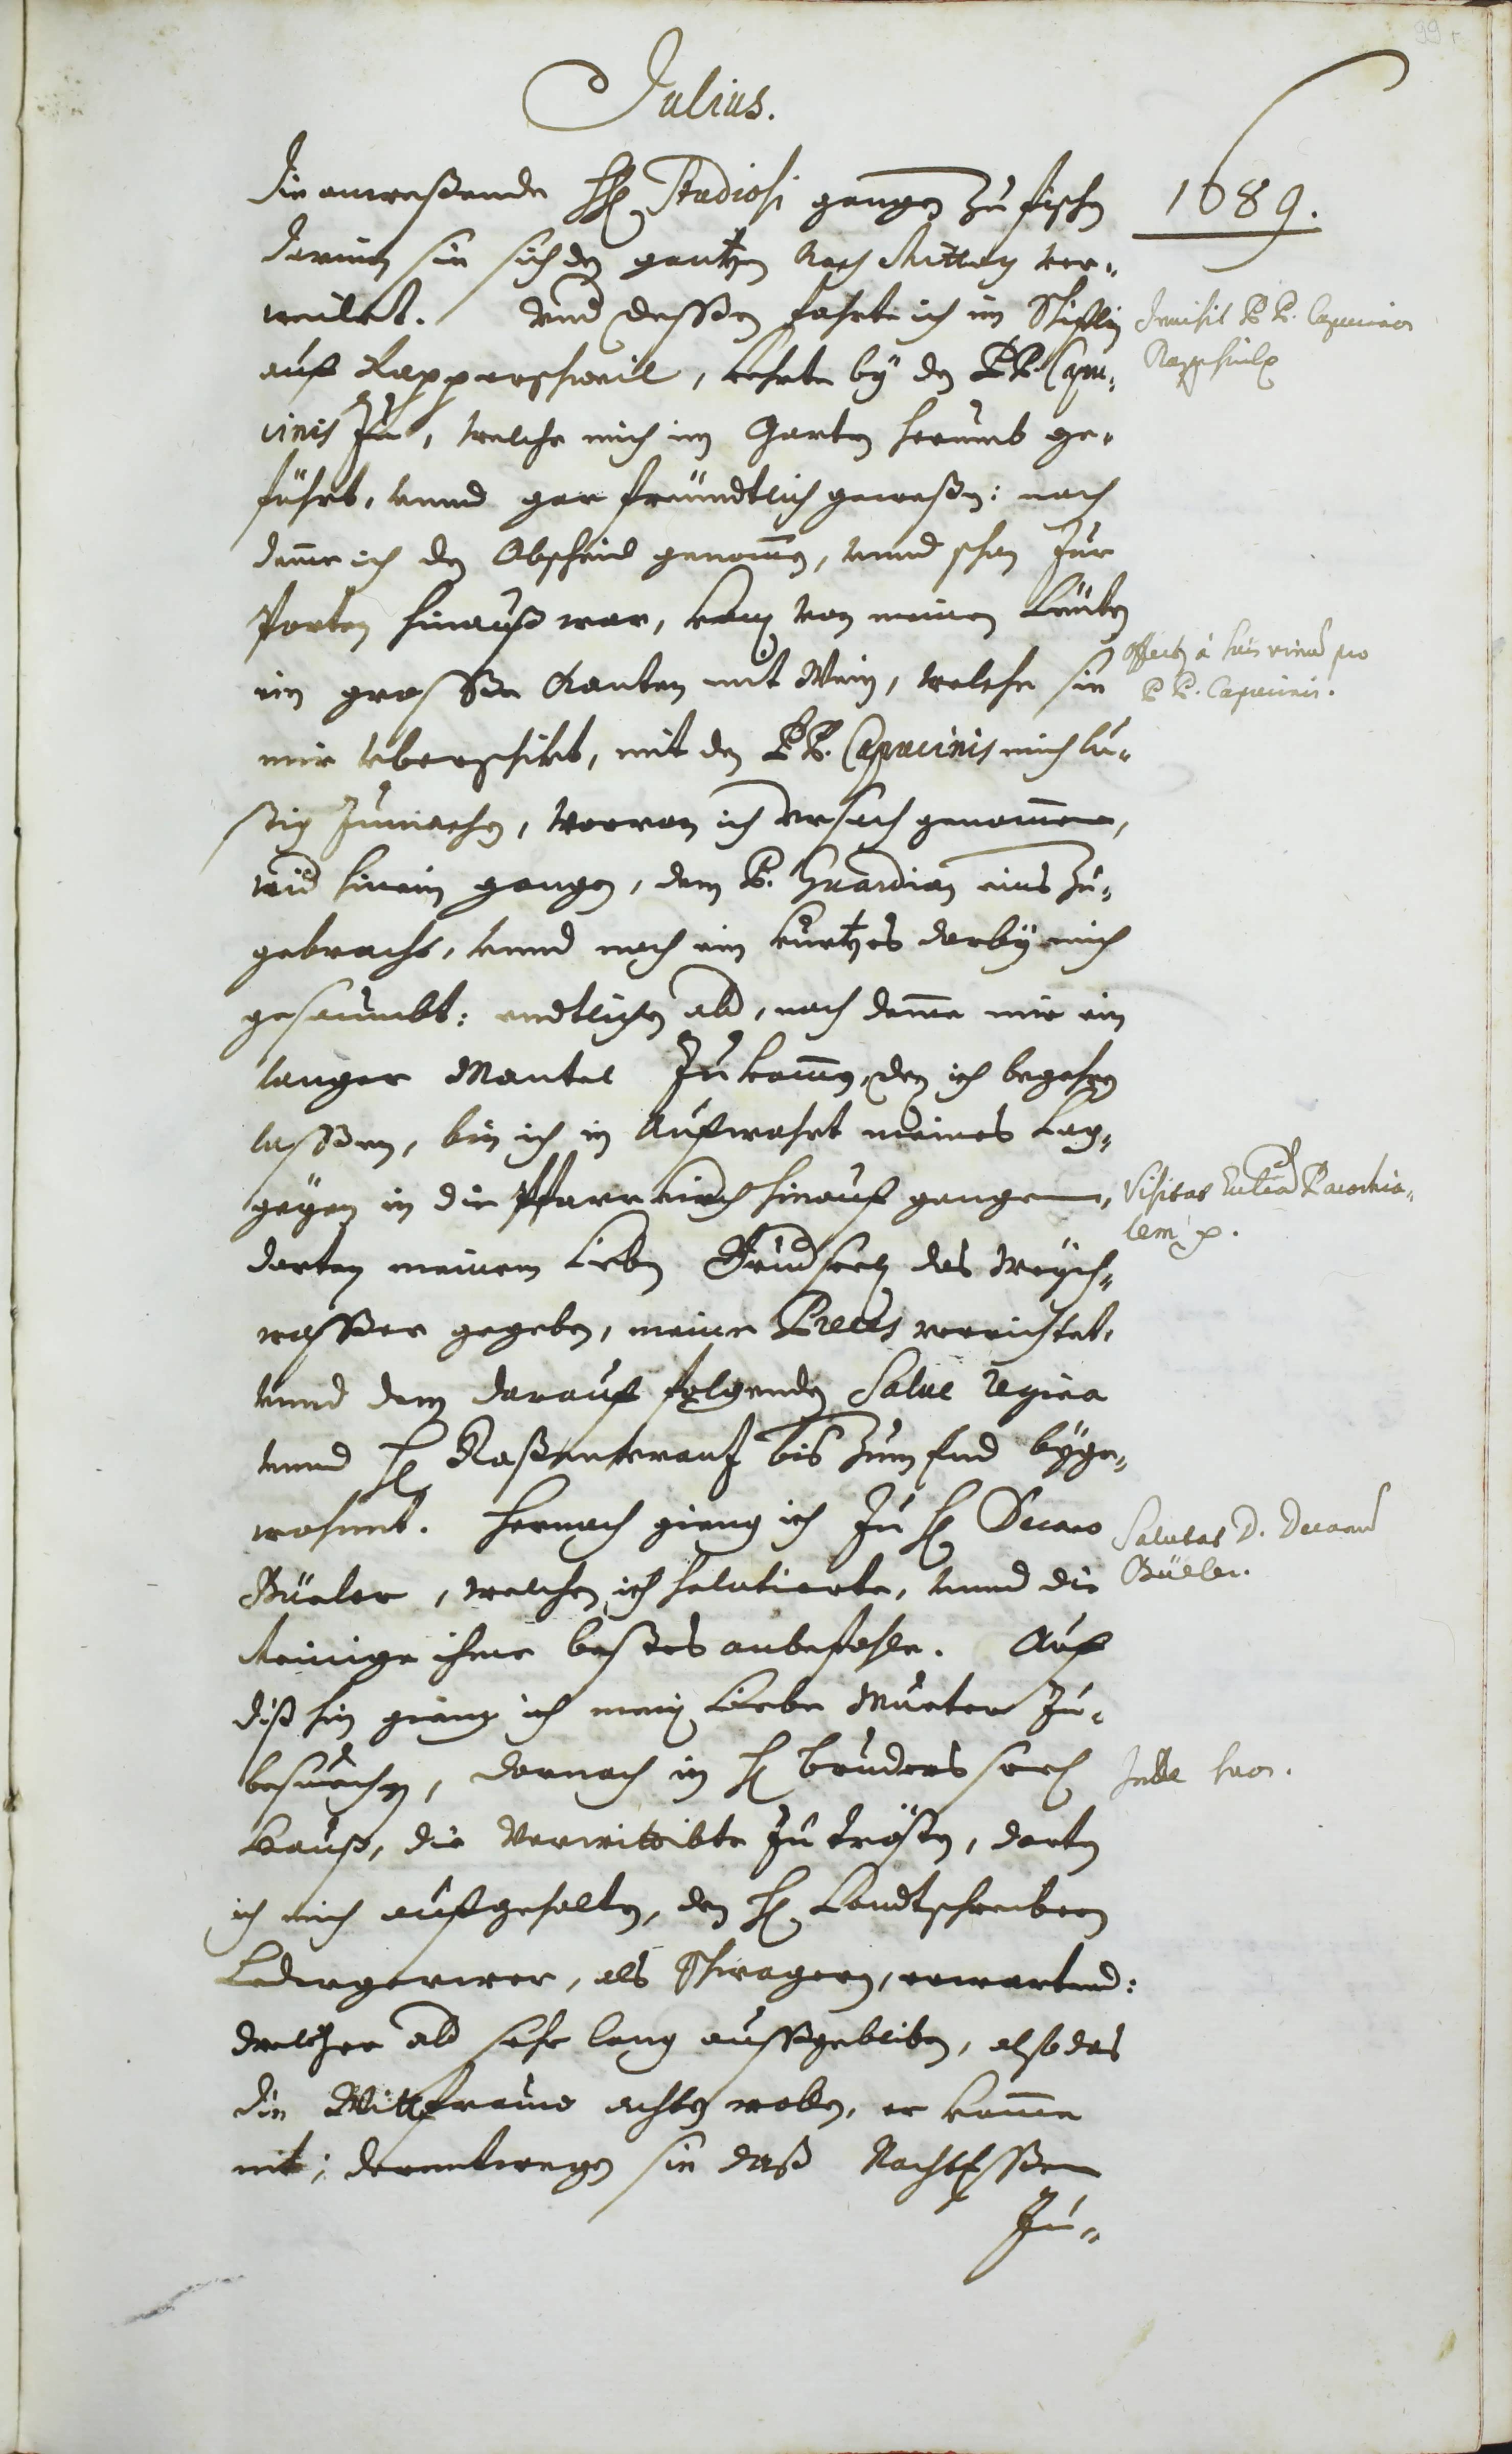 99 r
Julius.
1689.
die anweßende HH. Studiosi gangen zu fischen
darmit sie sich den gantzen Nach Mittag ver-
weilet. Und dessen fahrte ich im Schiffli
auf Rapperschweil, kehrte bÿ den PP. Capu-
cinis zu, welche mich im Garten herumb ge-
führt, unnd gar fründtlich geweßen: nach
deme ich den Abscheid genommen, unnd schon zur
Porten hinauß war, kam von meinen Leüten
ein grosse Kanten mit Wein, welche sie
mir überschikt, mit den PP. Capucinis mich lu-
stig zumachen, worvon ich Ursach genommen,
wid hinein gangen, dem P. Guardian eins zu-
gebracht, unnd noch ein kurtzes darbÿ mich
gesaumbt: endtlichen ab, nach deme mir ein
langer Mantel zukommen, den ich begehren
lassen, bin ich in Aufwahrt meines Lag-
geÿen in die Pfarrkirch hinauf gangen,
dorten meinem lieben Bruder seel. das Weÿch-
wasser gegeben, meine Preces verrichtet,
unnd dem darauf folgenden Salue Regina
unnd H. Roßenkrantz bis zum End bÿge-
wohnt. Hernach gieng ich zu H. Decano
Büeler, welchen ich salutierte, unnd die
Meinige ihme bestes anbefohle. Auf
diß hin gieng ich mein Liebe Mueter zu-
besuechen, darnach in H. bruders seel.
Hauß, die Verwittibte zu trösten, dorten
ich mich aufgehalten, den H. Landtschreibern
Ledergerwer, als Schwagern, erwartend:
welcher ab sehr lang aussgebliben, also das
die Wittfrauw achten wollen, er komme
nit; derentwegen sie daß Nachtessen
zu-
Invisit PP. Capucinos
Rappschwilae
Offertur à suis vinum pro
PP. Capucinis.
Visitat Eccliam Parochia-
lem p.
Salutat D. Decanum
Büeler.
Inde suos.